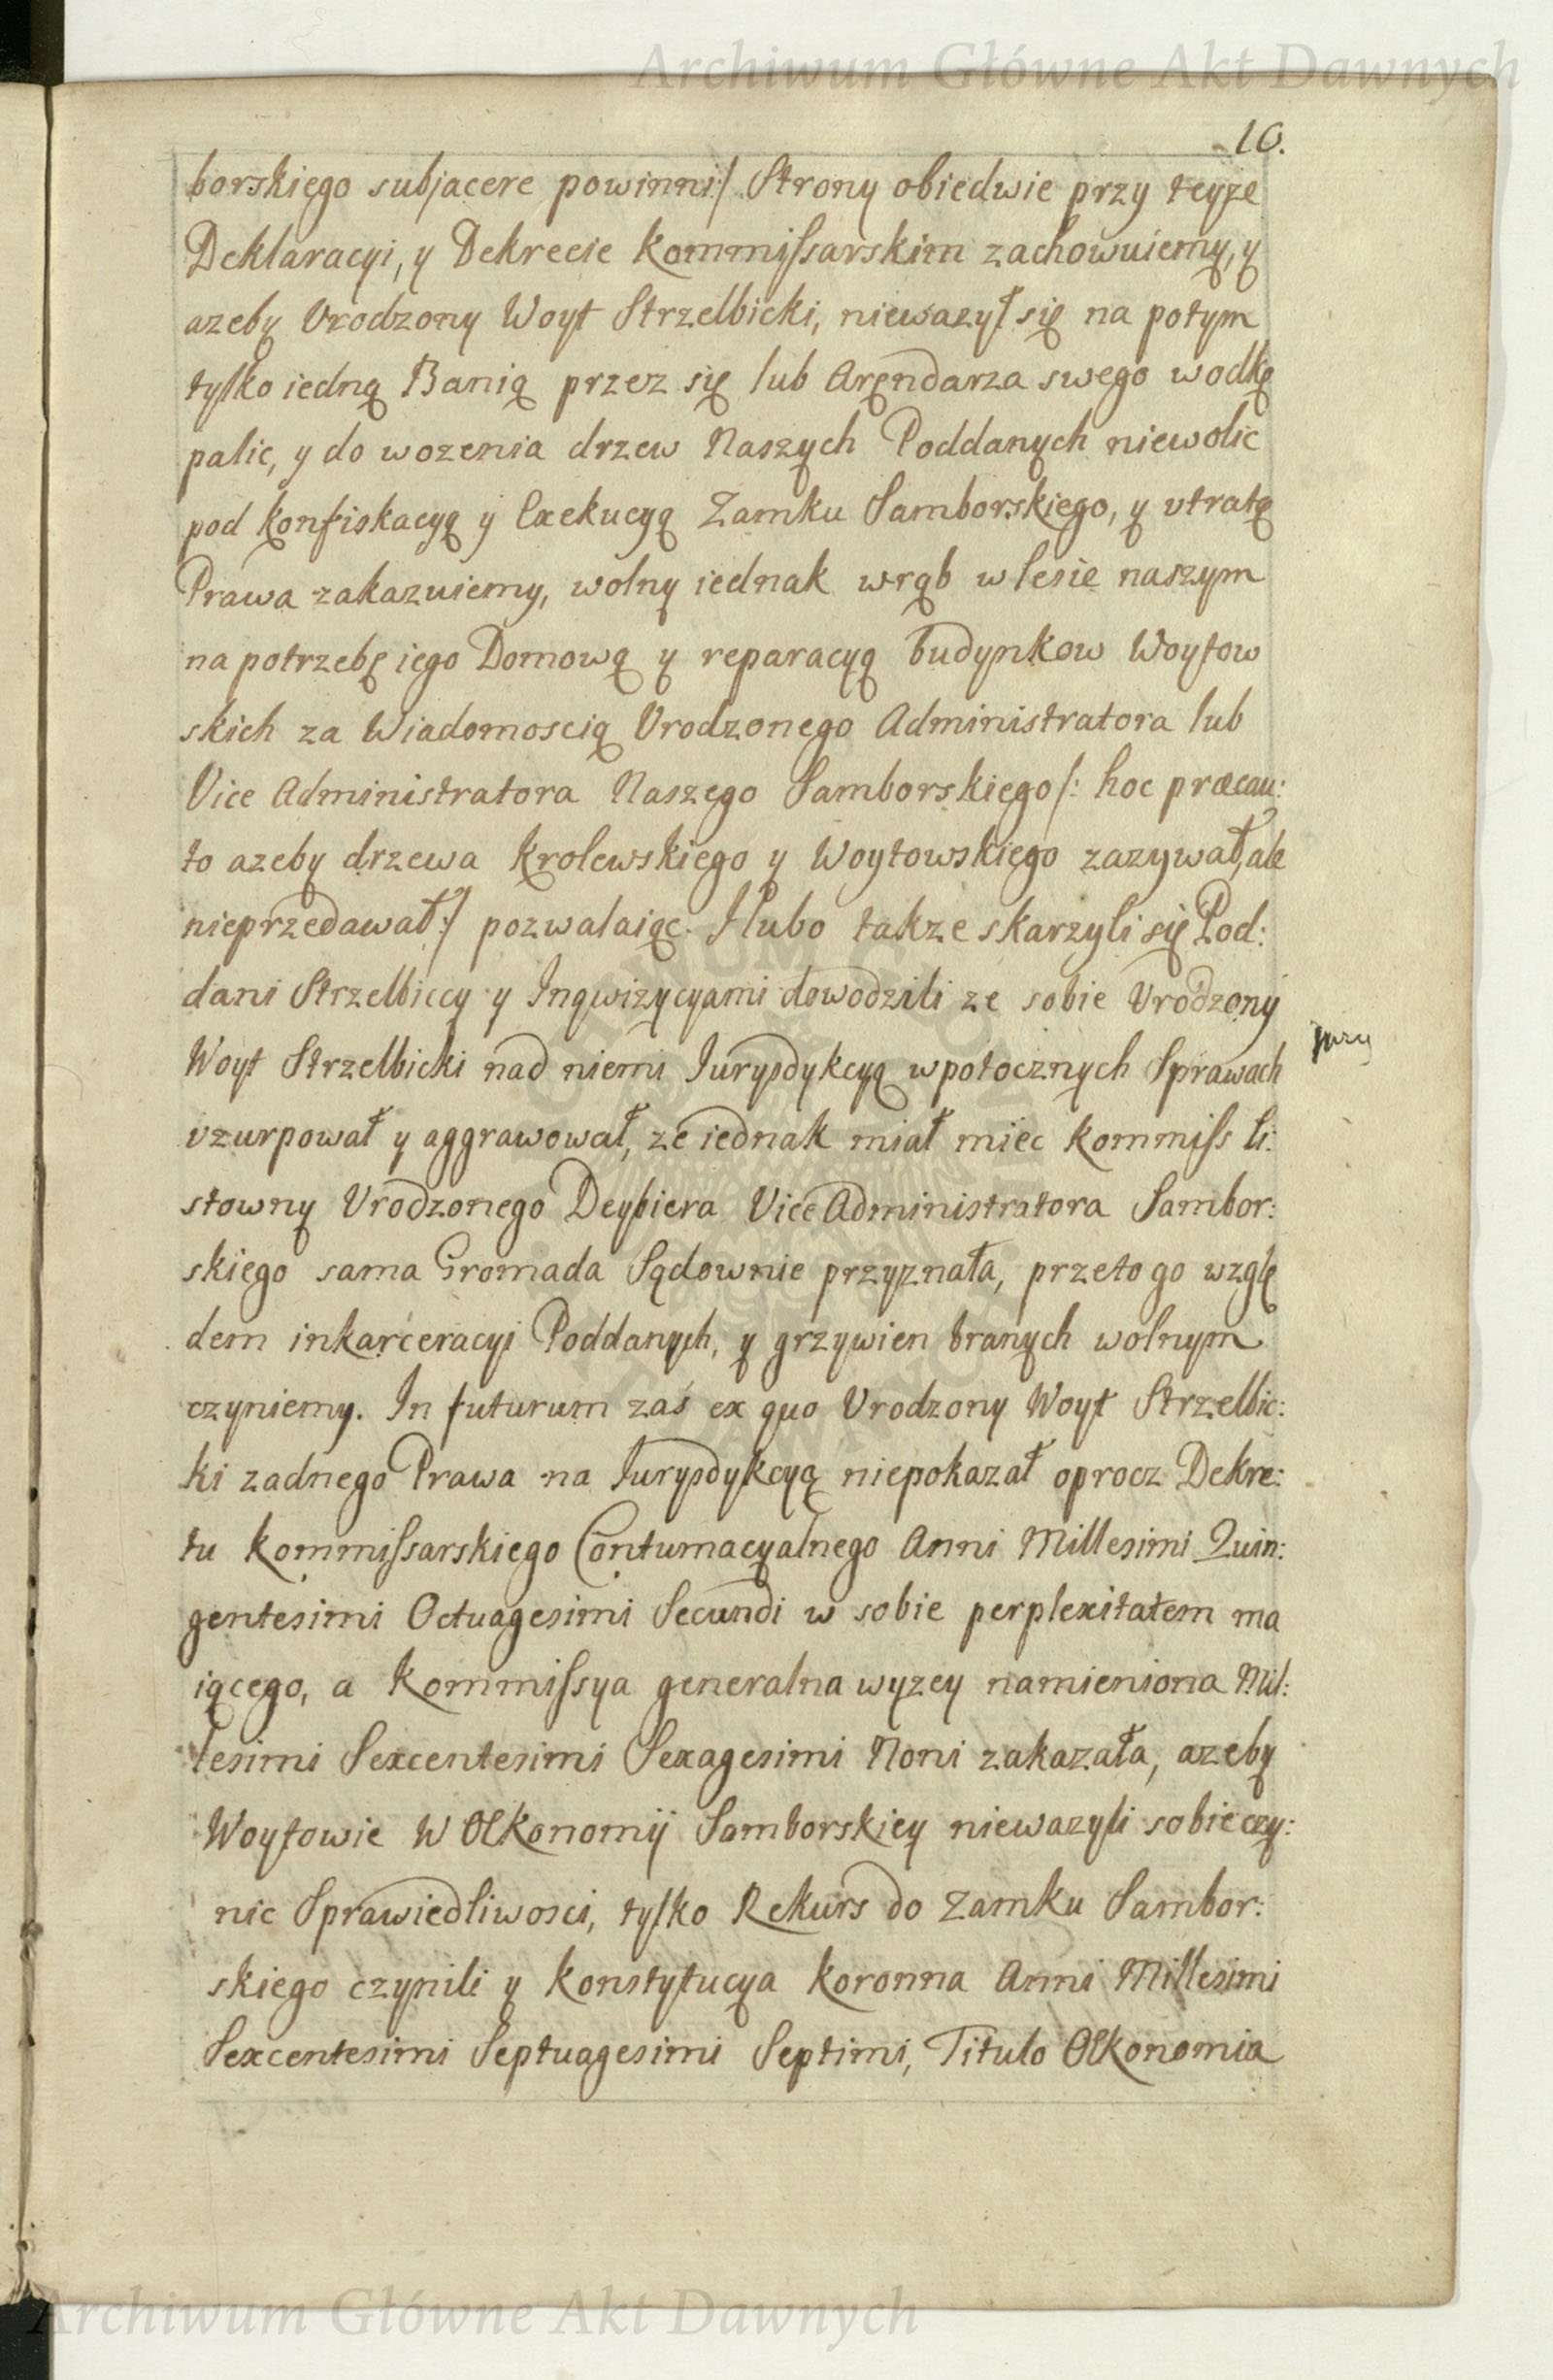 Archiwum Główne Akt Dawnych
10.
borskiego subjacere powinni:/ Strony obiedwie przy teyze
Deklaracyi, y Dekrecie Kommissarskim zachowuiemy, y
azeby Vrodzony Woyt Strzelbicki, niewazył się na potym
tylko iedną Banią przez się lub Aręndarza swego wodkę
palic, y do wozenia drzew Naszych Poddanych niewolic
pod Konfiskacyą y Exekucyą Zamku Samborskiego, y vtratę
Prawa zakazuiemy, wolny iednak wrąb w lesie naszym
na potrzebę iego Domową y reparacyą budynkow Woytow
skich za Wiadomoscią Vrodzonego Administratora lub
Vice Administratora Naszego Samborskiego /: hoc præcau:
to azeby drzewa Krolewskiego y Woytowskiego zazywał, ale
nieprzedawał :/ pozwalaiąc. I lubo takze skarzyli się Pod:
dani Strzelbiccy y Inqwizycyami dowodzili ze sobie Vrodzony
Woyt Strzelbicki nad niemi Iurysdykcyą w potocznych Sprawach
vzurpował y aggrawował, ze iednak miał miec Kommiss li:
stowny Vrodzonego Deybiera Vice Administratora Sambor:
skiego sama Gromada Sądownie przyznała, przeto go wzglę
dem inkarceracyi Poddanych, y grzywien branych wolnym
czyniemy. In futurum zaś ex quo Vrodzony Woyt Strzelbic:
ki zadnego Prawa na Iurysdykcyą niepokazał oprocz Dekre:
tu Kommissarskiego Contumacyalnego Anni Millesimi Quin:
gentesimi Octuagesimi Secundi w sobie perplexitatem ma
iącego, a Kommissya generalna wyzey namieniona Mil:
lesimi Sexcentesimi Sexagesimi Noni zakazała, azeby
Woytowie w Œkonomij Samborskiey niewazyli sobie czy:
nic Sprawiedliwosci, tylko Rekurs do Zamku Sambor:
skiego czynili y Konstytucya Koronna Anni Millesimi
Sexcentesimi Septuagesimi Septimi, Titulo Œkonomia
Archiwum Główne Akt Dawnych